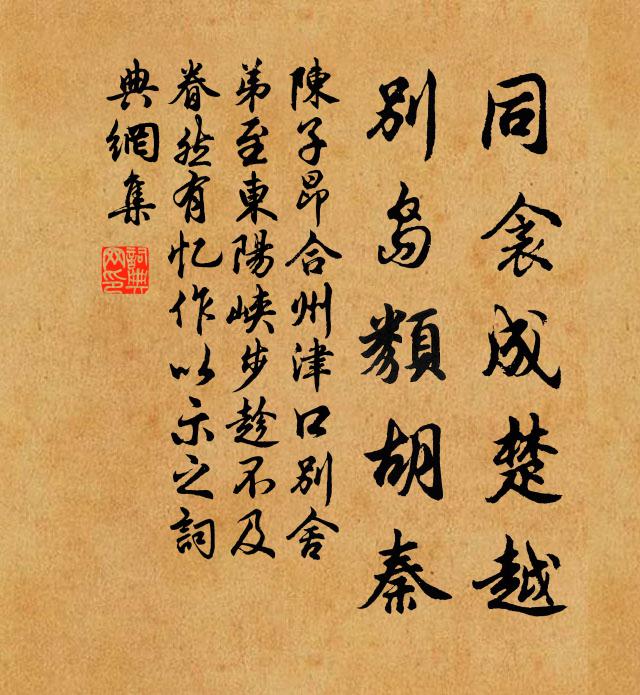 同衾成楚越
別岛類胡秦
陳子昂合州津口別舍
弟至東陽峽步趁不及
眷然有忆作以示之詞
典網集
詞典
网印